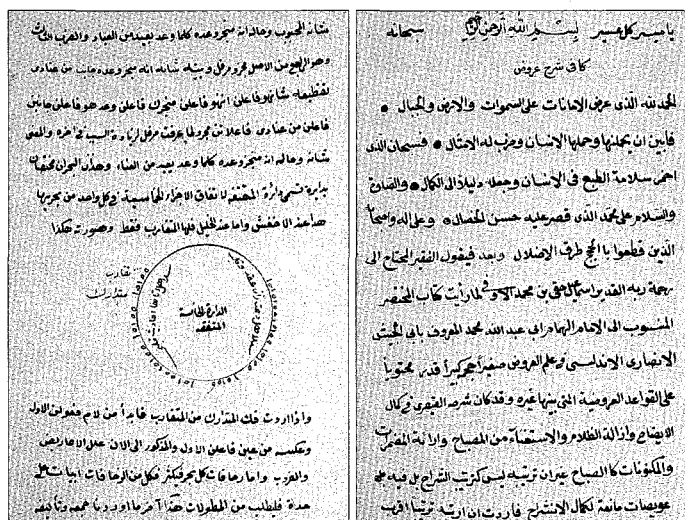 يا ميسر كل عسير بسم الله الرحمن الرحيم سبحانه
كافى شرح عروض
الحمد لله الذى عرض الامانات على السموات والارض والجبال
فابين ان يحملنها وحملها الانسان وضرب له الامثال فسبحان الذى
سلامة الطبع فى الانسان وجعله الى الكمال والصلوة
والسلام على محمد الذى قصر عليه حسن الخصال وعلى اله واصحابه
الذين قطعوا بالحجج طرق الاضلال وبعد فيقول الفقير المحتاج الى
رحمة ربه القدير بن محمد لما رأيت كتاب المختصر
المنسوب الى الامام الهمام ابى عبد الله محمد المعروف بابى الجيش
الانصارى الاندلسى فى علم العروض صغيرا حجمه كبيرا قدره محتويا
على القواعد العروضية التى بينها غيره وقد كان شرحه القيصرى فى كمال
الايضاح وازالة الظلام والاستغناء من المصباح وارائة المضمرات
والمكنونات كالصباح غير ان ترتيبه ليس كترتيب الشراح بل فيه على
عويصات مانعة لكمال الانشراح فاردت ان ارتبه ترتيبا اقرب
شانه المحبوب وحاله انه منجز وعده كلما وعد بعيد من العباد والضرب الثالث
وهو الرابع من الاصل مجزو مرفل وبيته شانه انه منجز وعده جانب من عنادى
تقطيعه شانهو فاعلن انهو فاعلن منجزن فاعلن وعدهو فاعلن جانبن
فاعلن من عنادى فاعلاتن مجزو لما عرفت مرفل لزيادة السبب فى اخره والمعنى
شانه وحاله انه منجز وعده كلما وعد بعيد من العناد وهذان البحران مختصان
بدايرة تسمى دائرة المتفقة لاتفاق الاجزاء الخماسية فى كل واحد من بحريها
هذا عند الاخفش واما عند الخليل فلها المتقارب فقط وصورته هكذا
متقارب
متدارك
الدائرة الخامسة
المتفقة
واذا اردت فك المتدارك من المتقارب فابدأ من لام فعولن الاول
وعكسه من عين فاعلن الاول والمذكور الى الان علل الاعاريض
والضروب واما زحافات كل بحر فيكثر فكل من الزحافات ابيات على
حدة فليطلب من المطولات هذا آخر ما اوردنا جمعه وتأليفه